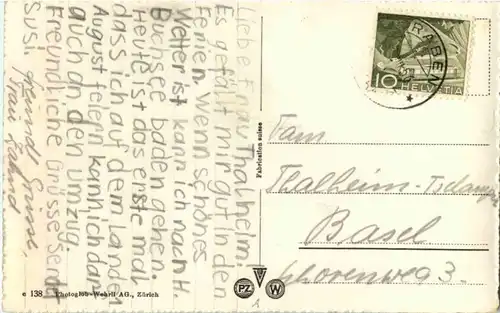 Liebe Frau Thalheim!
Es gefällt mir gut in den
Ferien. Wenn schönes
Wetter ist kann ich nach H.
Buchsee baden gehen.
Heute ist das erste mal
dass ich auf dem Lande
August feiern kann. Ich darf
auch an den Umzug.
Freundliche Grüsse Sendet
Susi
freundl Grüsse,
Frau
RABEN
10
HELVETIA
Fabrication suisse
Fam
Thalheim-
Basel
thorenweg 3.
c 138
Photoglob-Wehrli AG., Zürich
PZ
W